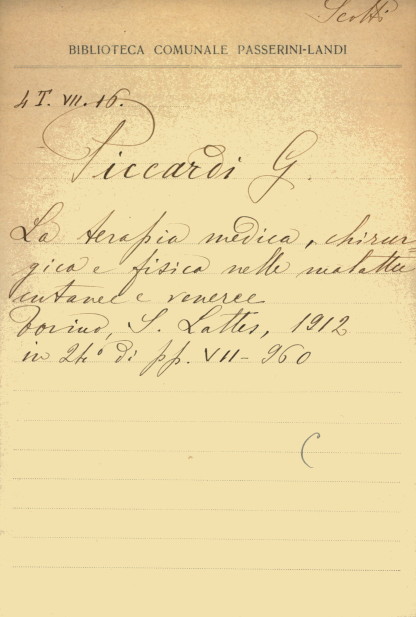 Scotti
BIBLIOTECA COMUNALE PASSERINI-LANDI
4 T. VII. 16.
Piccardi G.
La terapia medica, chirur=
gica e fisica nelle malattie
cutanee e veneree
Torino, S. Lattes, 1912
in 24° di pp. VII-960